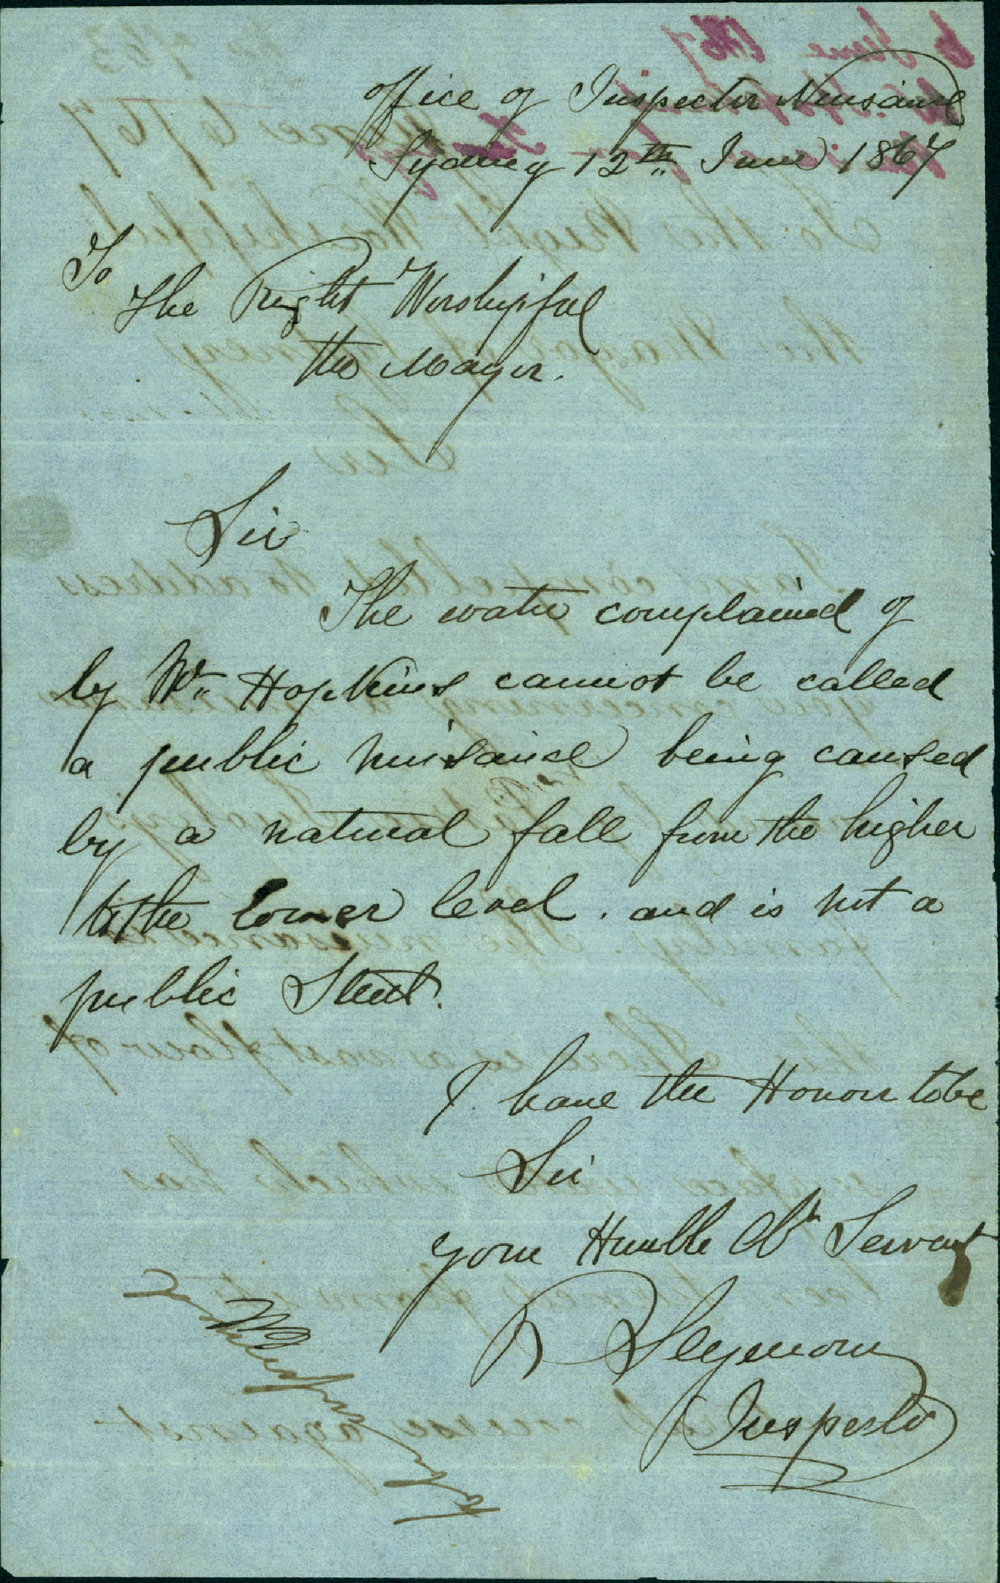 Office of Inspector Nuisance
Sydney 12th June 1867
To
The Right Worshipful
the Mayor.
Sir
The water complained of
by Mr Hopkins cannot be called
a public nuisance being caused
by a natural fall from the higher
to the lower level. and is not a
public Street.
I have the Honour to be
Sir
your Humble Obt Servant
R Seymour
Inspector